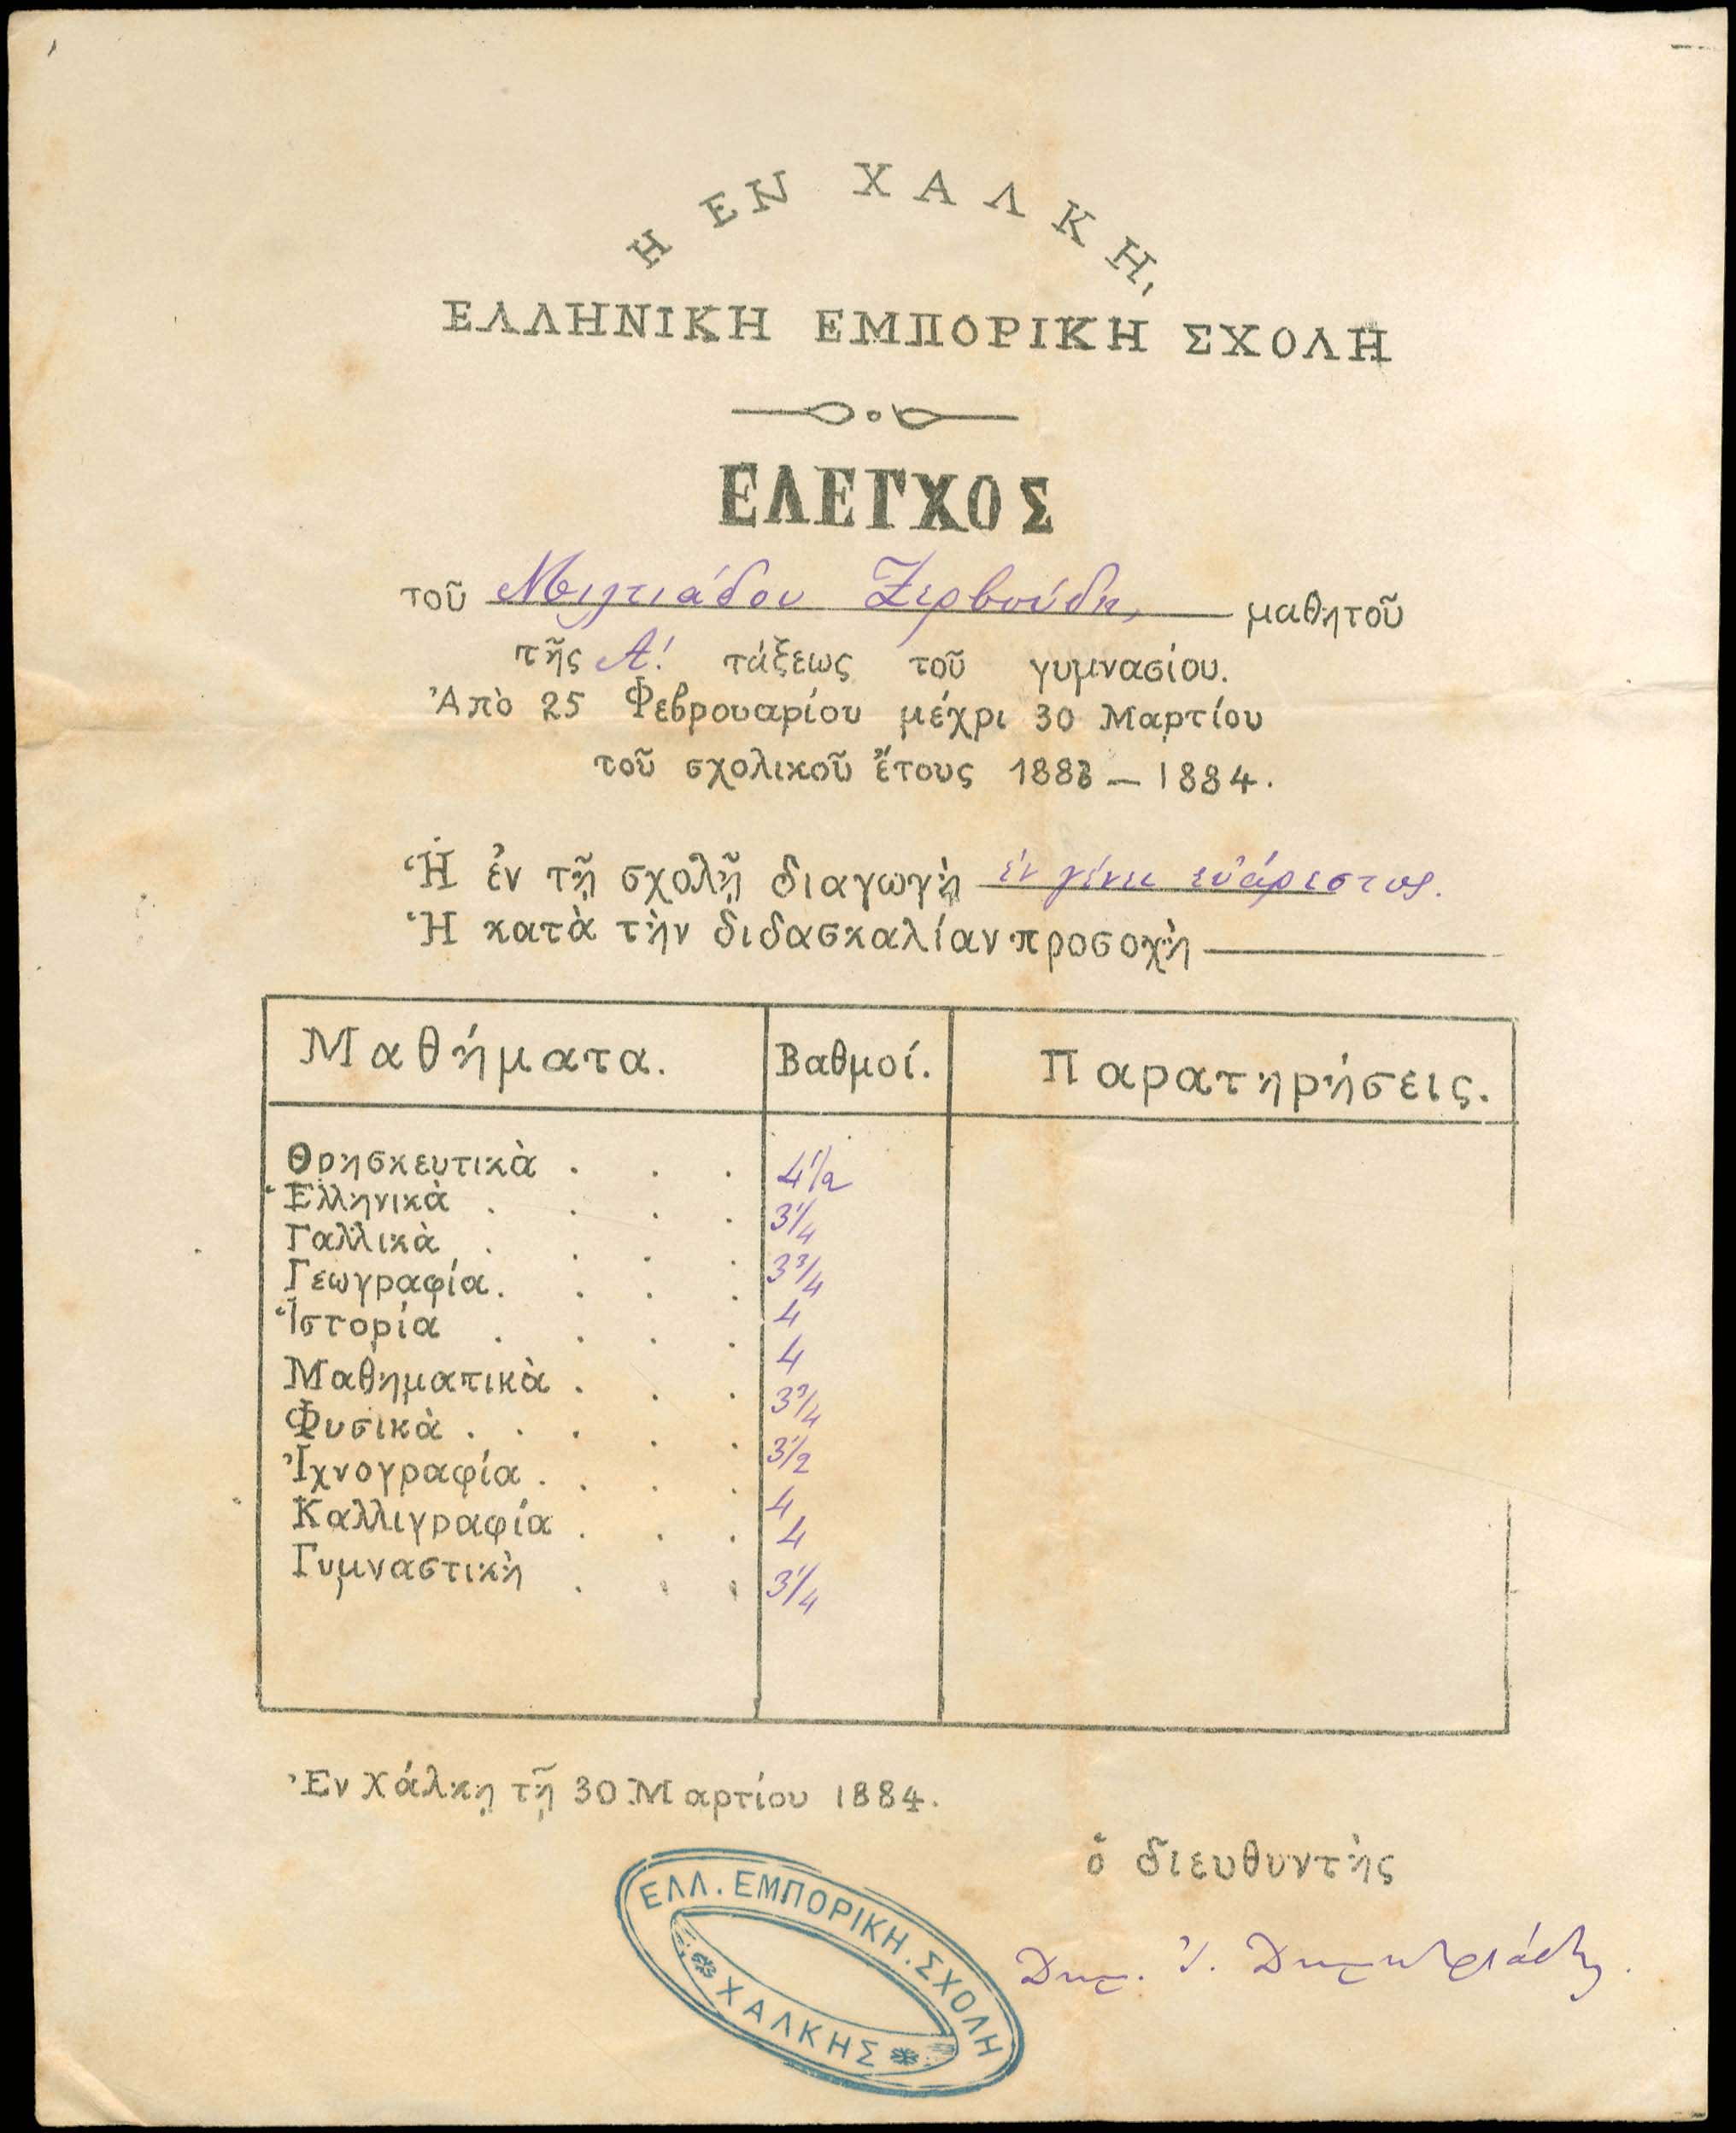 Η ΕΝ ΧΑΛΚΗ,
ΕΛΛΗΝΙΚΗ ΕΜΠΟΡΙΚΗ ΣΧΟΛΗ
ΕΛΕΓΧΟΣ
τοῦ Μιλτιάδου Ζερβούδη, μαθητοῦ
τῆς Α! τάξεως τοῦ γυμνασίου.
Ἀπὸ 25 Φεβρουαρίου μέχρι 30 Μαρτίου
τοῦ σχολικοῦ ἔτους 1883 – 1884.
Ἡ ἐν τῇ σχολῇ διαγωγὴ ἐν γένει εὐάρεστος.
Ἡ κατὰ τὴν διδασκαλίαν προσοχὴ
Μαθήματα. Βαθμοί. Παρατηρήσεις.
Θρησκευτικὰ . . . 4 1/2
Ἑλληνικὰ . . . . 3 1/4
Γαλλικὰ . . . . 3 3/4
Γεωγραφία. . . . 4
Ἱστορία . . . . 4
Μαθηματικὰ . . . 3 3/4
Φυσικὰ . . . . . 3 1/2
Ἰχνογραφία . . . . 4
Καλλιγραφία . . . 4
Γυμναστικὴ . . . 3 1/4
Ἐν Χάλκῃ τῇ 30 Μαρτίου 1884.
ὁ διευθυντὴς
Δημ. Ἰ. Δημητριάδης.
ΕΛΛ. ΕΜΠΟΡΙΚΗ. ΣΧΟΛΗ
ΧΑΛΚΗΣ